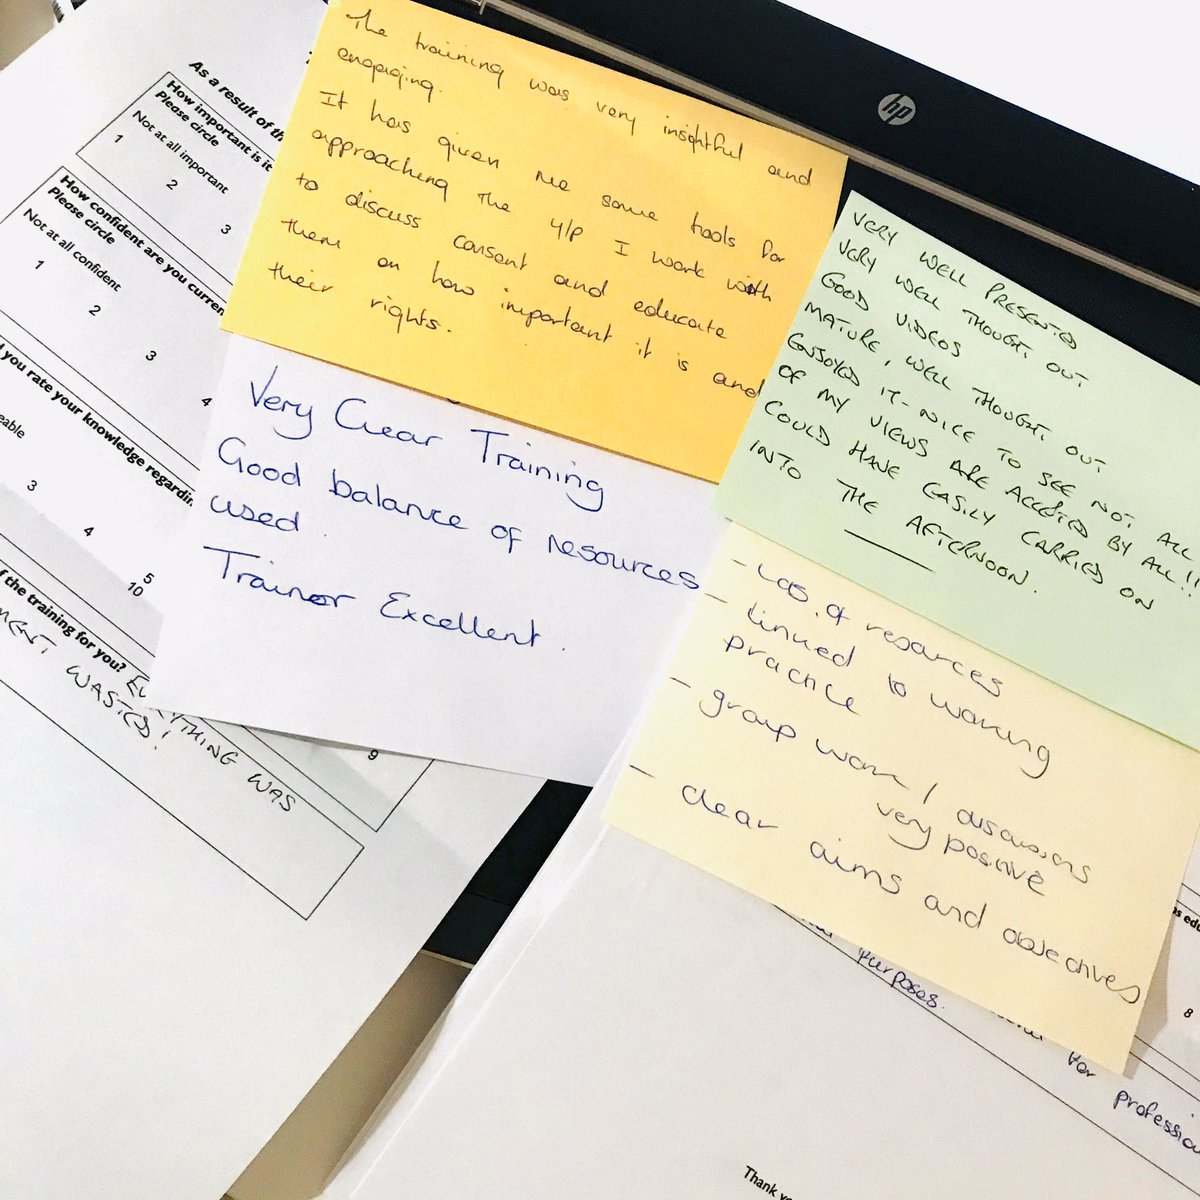 The training was very insightful and
engaging.
It has given me some tools for
approaching the y/p I work with
to discuss consent and educate
them on how important it is and
their rights.
VERY WELL PRESENTED
VERY WELL THOUGHT OUT
GOOD VIDEOS
MATURE, WELL THOUGHT OUT
ENJOYED IT - NICE TO SEE NOT ALL
OF MY VIEWS ARE ACCEPTED BY ALL!!
COULD HAVE EASILY CARRIED ON
INTO THE AFTERNOON.
Very Clear Training
Good balance of resources
used.
Trainer Excellent.
- of resources
- linked to working
practice
- group work / discussions
very positive
- clear aims and objectives
hp
As a result of th
How important is it
Please circle
Not at all important
1 2 3
How confident are you curren
Please circle
Not at all confident
1 2 3 4
you rate your knowledge regardin
eable
3 4 5
10
f the training for you? EVERYTHING WAS
WASTED!
9
purposes.
for professio
8
Thank y